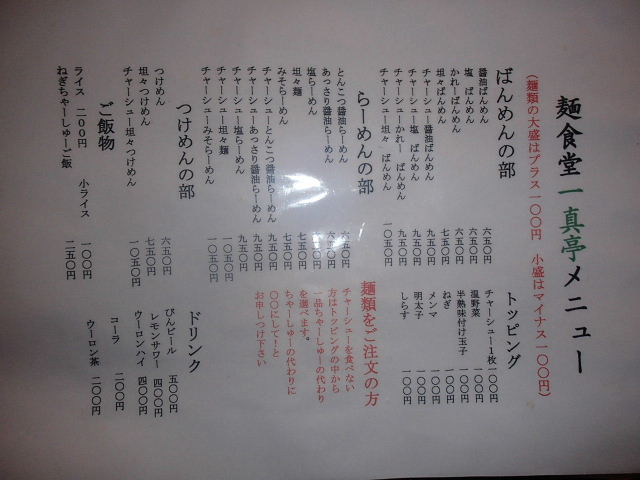 麺食堂 一真亭 メニュー
(麺類の大盛はプラス一〇〇円 小盛はマイナス一〇〇円)
ばんめんの部
醤油ばんめん 六五〇円
塩 ばんめん 六五〇円
かれーばんめん 六五〇円
坦々ばんめん 七五〇円
チャーシュー醤油ばんめん 九五〇円
チャーシュー塩 ばんめん 九五〇円
チャーシューかれー ばんめん 九五〇円
チャーシュー坦々 ばんめん 一〇五〇円
トッピング
チャーシュー1枚 一〇〇円
温野菜 一〇〇円
半熟味付け玉子 一〇〇円
ねぎ 一〇〇円
メンマ 一〇〇円
明太子 一〇〇円
しらす 一〇〇円
らーめんの部
とんこつ醤油らーめん 六五〇円
あっさり醤油らーめん 六五〇円
塩らーめん 六五〇円
坦々麺 七五〇円
みそらーめん 七五〇円
チャーシューとんこつ醤油らーめん 九五〇円
チャーシューあっさり醤油らーめん 九五〇円
チャーシュー塩らーめん 九五〇円
チャーシュー坦々麺 一〇五〇円
チャーシューみそらーめん 一〇五〇円
麺類をご注文の方
チャーシューを食べない
方はトッピングの中から
一品ちゃーしゅーの代わり
を選べます。
ちゃーしゅーの代わりに
〇〇にして!と
お申しつけ下さい
つけめんの部
つけめん 六五〇円
坦々つけめん 七五〇円
チャーシュー坦々つけめん 一〇五〇円
ご飯物
ライス 二〇〇円 小ライス 一〇〇円
ねぎちゃーしゅーご飯 二五〇円
ドリンク
びんビール 五〇〇円
レモンサワー 四〇〇円
ウーロンハイ 四〇〇円
コーラ 二〇〇円
ウーロン茶 二〇〇円